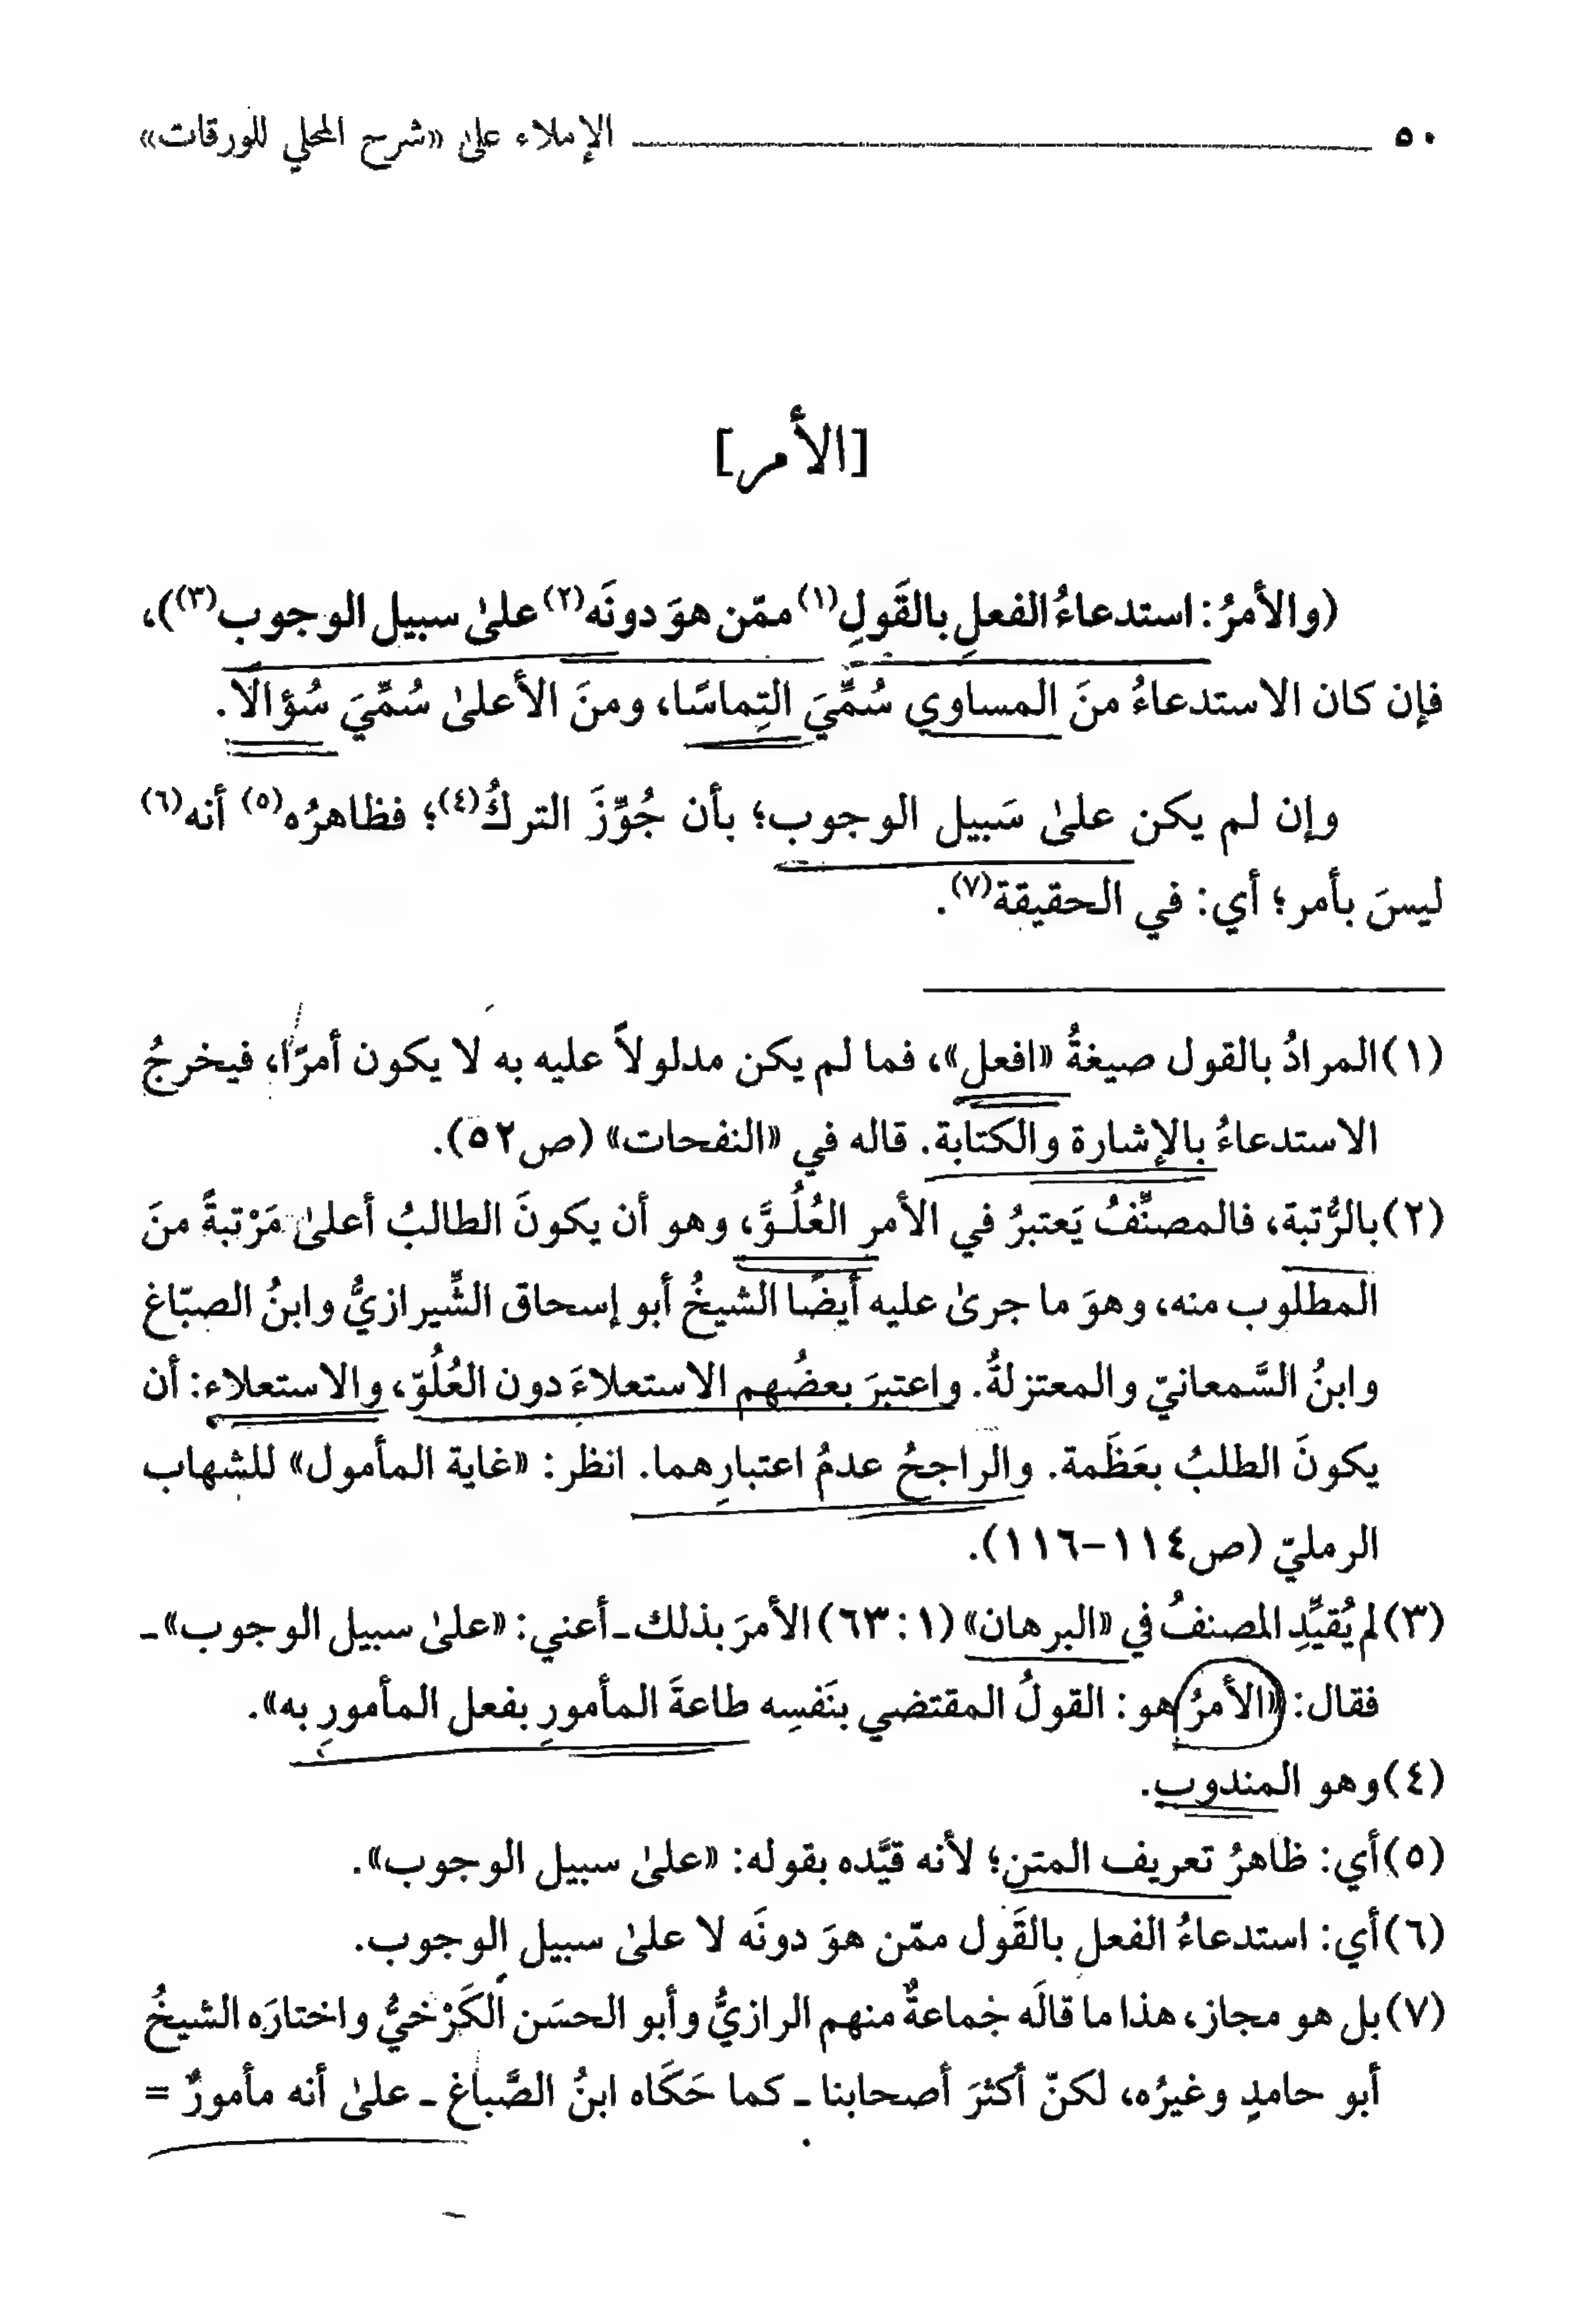 ٥٠ الإملاء على «شرح المحلي للورقات»
[الأمر]
(والأمرُ: استدعاءُ الفعلِ بالقَولِ(١) ممّن هوَ دونَه(٢) علىٰ سبيل الوجوب(٣))،
فإن كان الاستدعاءُ منَ المساوي سُمِّيَ التِماسًا، ومنَ الأعلىٰ سُمِّيَ سُؤالًا.
وإن لم يكن علىٰ سَبيل الوجوب؛ بأن جُوِّزَ التركُ(٤)؛ فظاهرُه(٥) أنه(٦)
ليسَ بأمر؛ أي: في الحقيقة(٧).
(١) المرادُ بالقول صيغةُ «افعل»، فما لم يكن مدلولاً عليه به لا يكون أمرًا، فيخرجُ
الاستدعاءُ بالإشارة والكتابة. قاله في «النفحات» (ص٥٢).
(٢) بالرُّتبة، فالمصنِّفُ يَعتبرُ في الأمر العُلُـوَّ، وهو أن يكونَ الطالبُ أعلىٰ مَرْتبةً منَ
المطلوب منه، وهوَ ما جرىٰ عليه أيضًا الشيخُ أبو إسحاق الشِّيرازيُّ وابنُ الصبّاغ
وابنُ السَّمعانيّ والمعتزلةُ. واعتبرَ بعضُهم الاستعلاءَ دون العُلُوّ، والاستعلاء: أن
يكونَ الطلبُ بعَظَمة. والراجحُ عدمُ اعتبارِهما. انظر: «غاية المأمول» للشهاب
الرمليّ (ص١١٤-١١٦).
(٣) لم يُقيِّدِ المصنفُ في «البرهان» (١: ٦٣) الأمرَ بذلك ـ أعني: «علىٰ سبيل الوجوب» ـ
فقال: «الأمرُ هو: القولُ المقتضي بنَفسِه طاعةَ المأمورِ بفعل المأمورِ به».
(٤) وهو المندوب.
(٥) أي: ظاهرُ تعريف المتن؛ لأنه قيَّده بقوله: «علىٰ سبيل الوجوب».
(٦) أي: استدعاءُ الفعل بالقَول ممّن هوَ دونَه لا علىٰ سبيل الوجوب.
(٧) بل هو مجاز، هذا ما قالَه جماعةٌ منهم الرازيُّ وأبو الحسَن الكَرْخيُّ واختارَه الشيخُ
أبو حامدٍ وغيرُه، لكنّ أكثرَ أصحابنا ـ كما حَكَاه ابنُ الصَّباغ ـ علىٰ أنه مأمورٌ =